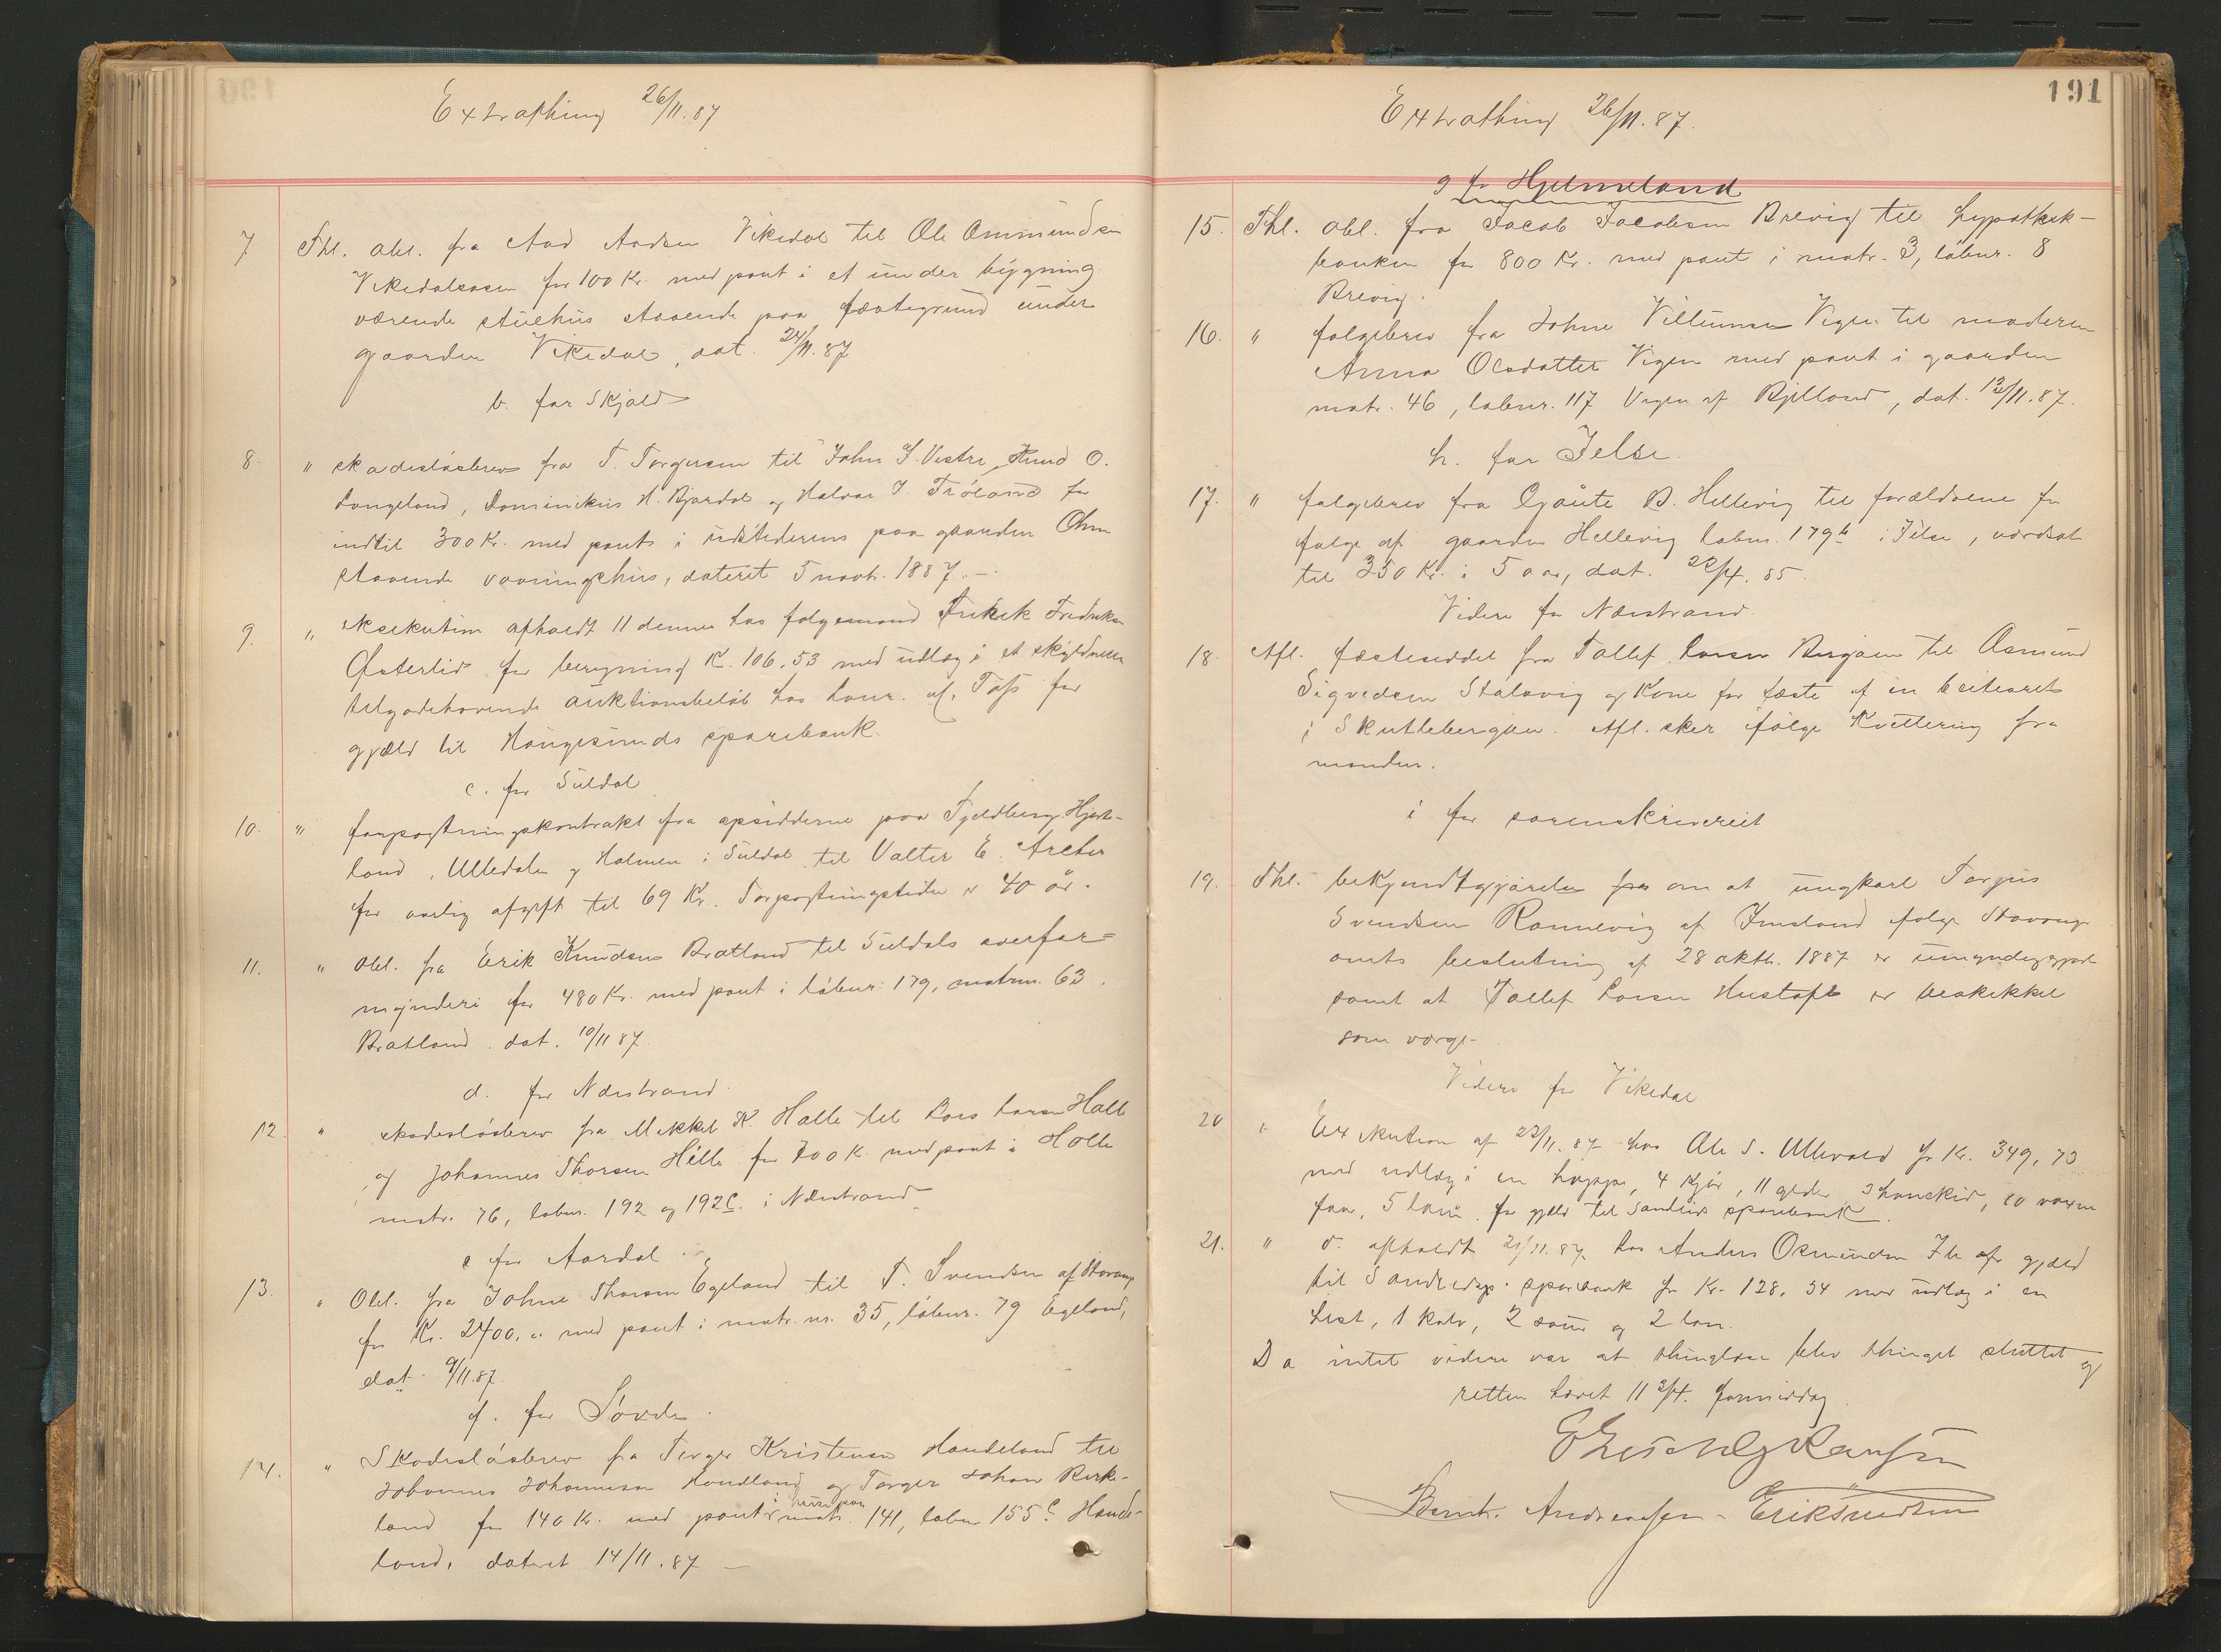 Extrathing 26/11.87
7 Thl. obl. fra Aad Aadsen Vikedal til Ole Ommundsen
Vikedalsosen for 100 Kr. med pant i et under bygning
værende stuehus staaende paa fæstegrund under
gaarden Vikedal, dat. 24/11.87
b. for Skjold
8. " skadesløsbrev fra T. Torgersen til John J. Vestre, Knud O.
Langeland, Dominikus H. Bjordal og Halvor J. Frøland for
indtil 300 Kr. med pant i udstederens paa gaarden Ohm
staaende vaaningshus, dateret 5 novbr. 1887. –
9. " eksekution afholdt 11 dennes hos følgemand Fredrik Fredriksen
Østerlid for beregning K. 106.53 med udlæg i et skyldneren
tilgodehavende auktionsbeløb hos lensm. af. Tøss for
gjæld til Haugesunds sparebank.
c. for Suldal
10. " forpagtningskontrakt fra opsidderne paa Fjeldberg, Hjorte-
land, Ulledalen og Holmen i Suldal til Valter E. Archer
for aarlig afgift til 69 Kr. Forpagtningstiden er 40 år.
11. " Obl. fra Erik Knudsen Bratland til Suldals overfor=
mynderi for 480 Kr. med pant i løbnr. 179, matrnr. 63.
Bratland. dat. 10/11 87.
d. for Nærstrand.
12. " skadesløsbrev fra Mikkel K. Halle til Lars Larsen Halle
og Johannes Thorsen Hålle for 700 K. med pant i Halle
matr. 76, løbnr. 192 og 192c. i Nærstrand
e for Aardal.
13. " Obl. fra Johne Thorsen Egeland til T. Svendsen af Stavang
for Kr. 2400,00 med pant i matr. nr. 35, løbnr. 79 Egeland,
dat. 9/11.87.
f. for Søvde.
14. " Skadesløsbrev fra Torger Kristensen Handeland til
Johannes Johannesen Handeland og Torger Johan Birke-
land for 140 Kr. med pant i huse paa matr. 141, løbnr 155c Hande-
land, dateret 14/11.87 –
191
Extrathing 26/11.87.
g for Hjelmeland
15. Thl. obl. fra Jacob Jacobsen Brevig til hypothek-
banken for 800 Kr. med pant i matr. 3, løbnr. 8
Brevig.
16. " følgebrev fra Johne Villumsen Vigen til moderen
Anna Olsdatter Vigen med pant i gaarden
matr. 46, løbnr. 117 Vigen af Bjelland, dat. 12/11.87.
h. for Jelse.
17. " følgebrev fra Gjøute B. Hellevig til forældrene for
følge af gaarden Hellevig løbnr. 179b i Jelse, værdsat
til 350 Kr. i 5 aar, dat. 22/4.85.
Videre for Nærstrand.
18. Afl. fæsteseddel fra Tollef Larsen Bergøen til Asmund
Sigvedsen Stølsvig og Kone for fæste af en beitesret
i Skutlebergøen. Afl. sker ifølge Kvittering fra
manden.
i for sorenskriveriet
19. Thl. bekjendtgjørelse fra om at ungkarl Torjus
Svendsen Rønnevig af Imsland ifølge Stavanger
amts beslutning af 28 oktb. 1887 er umyndiggjort
samt at Tollef Larsen Hustoft er beskikket
som værge.
Videre for Vikedal
20 " Exekution af 22/11.87 hos Ole S. Ullevold for Kr. 349,73
med udlæg i en hoppe, 4 Kjør, 11 geder, 3 hanekid, 20 voxne
faar, 5 lam. for gjæld til Sandeids sparebank.
21. " d. afholdt 21/11.87. hos Anders Osmundsen for gjæld
til Sandeids. sparebank for Kr. 128.54 med udlæg i en
hest, 1 kalv, 2 sauer og 2 lam.
Da intet videre var at thinglæse blev thinget sluttet og
retten hævet 11 3/4. formiddag.
Bernt. Andreassen – Erik Knudsen